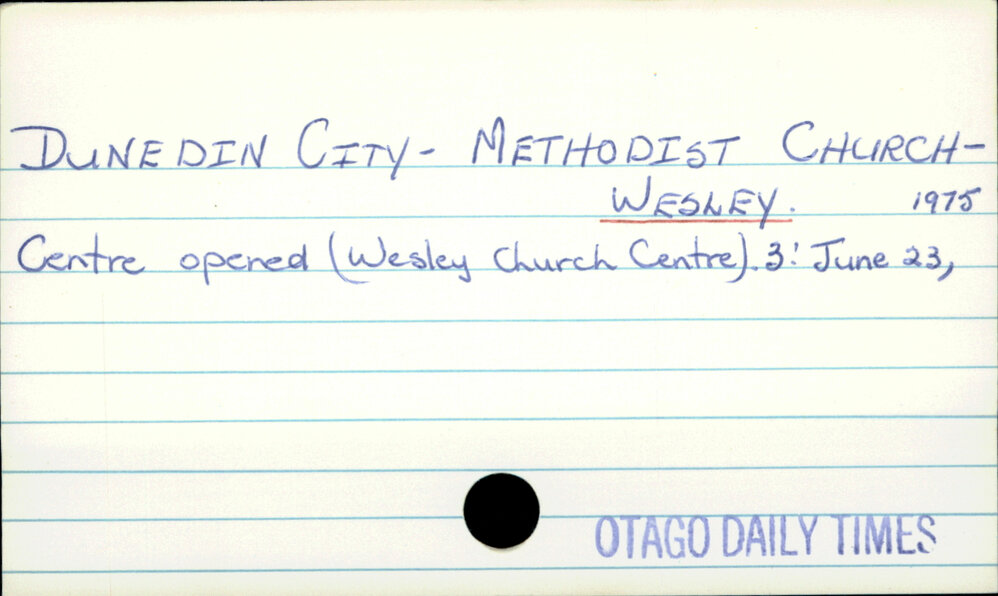 DUNEDIN CITY- METHODIST CHURCH-
WESLEY. 1975
Centre opened (Wesley Church Centre). 3: June 23,
OTAGO DAILY TIMES